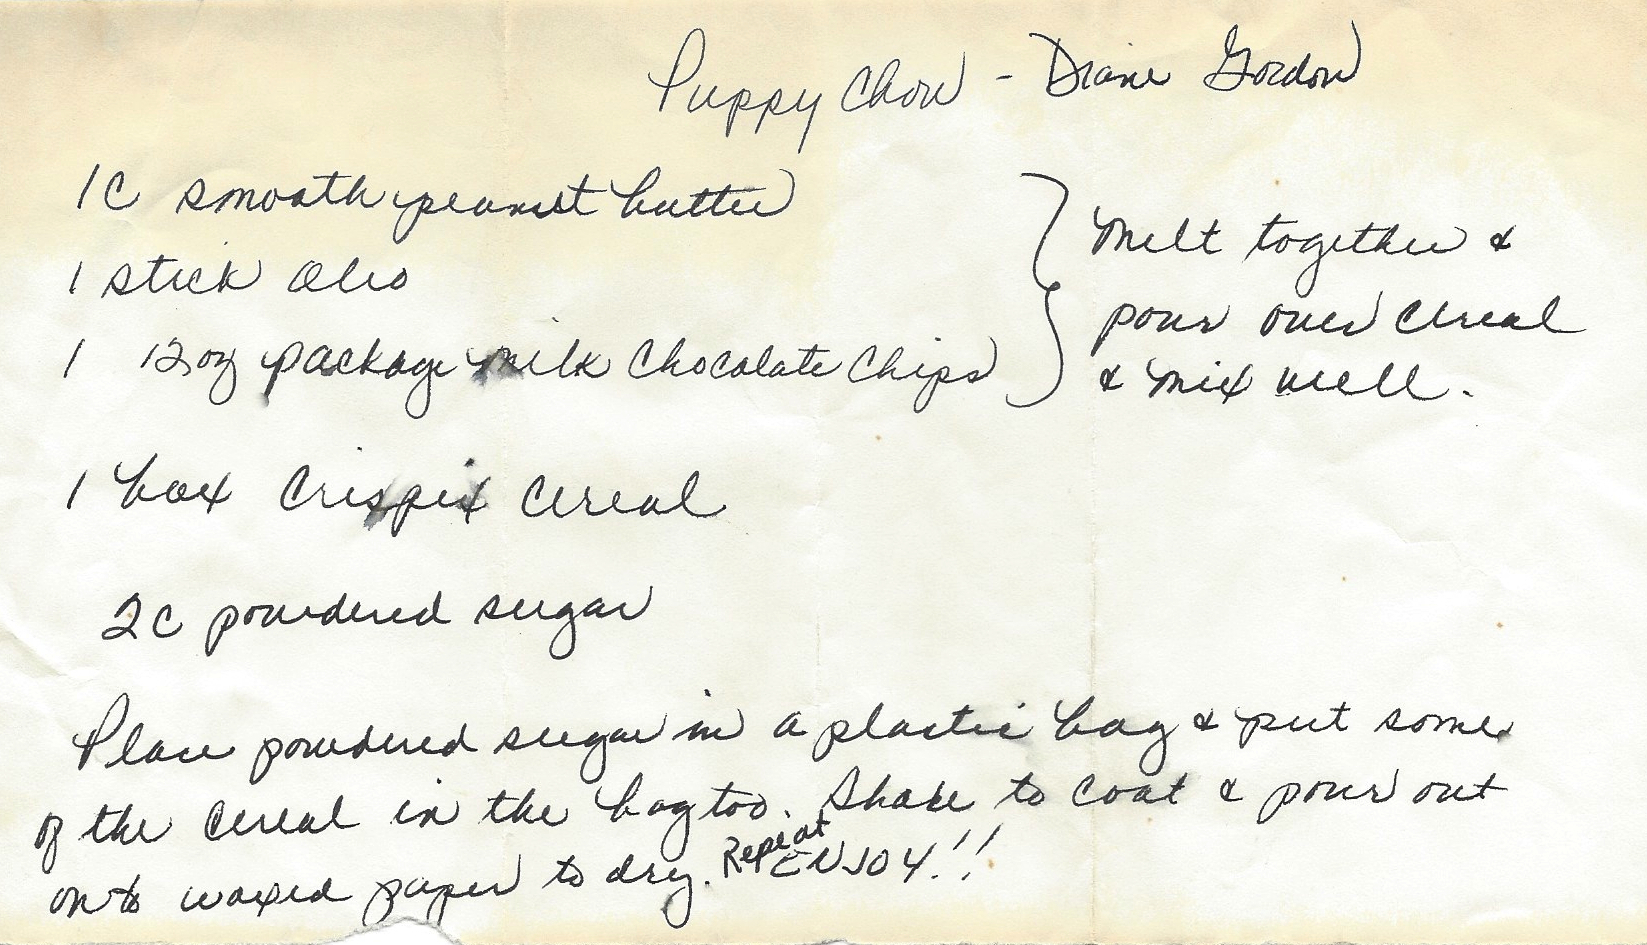 Puppy Chow - Diane Gordon
1C smooth peanut butter
1 stick Oleo
1 12 oz package milk Chocolate Chips
melt together &
pour over cereal
& mix well.
1 box Crispix Cereal
2C powdered sugar
Place powdered sugar in a plastic bag & put some
of the cereal in the bag too. Shake to coat & pour out
onto waxed paper to dry. Repeat ENJOY!!